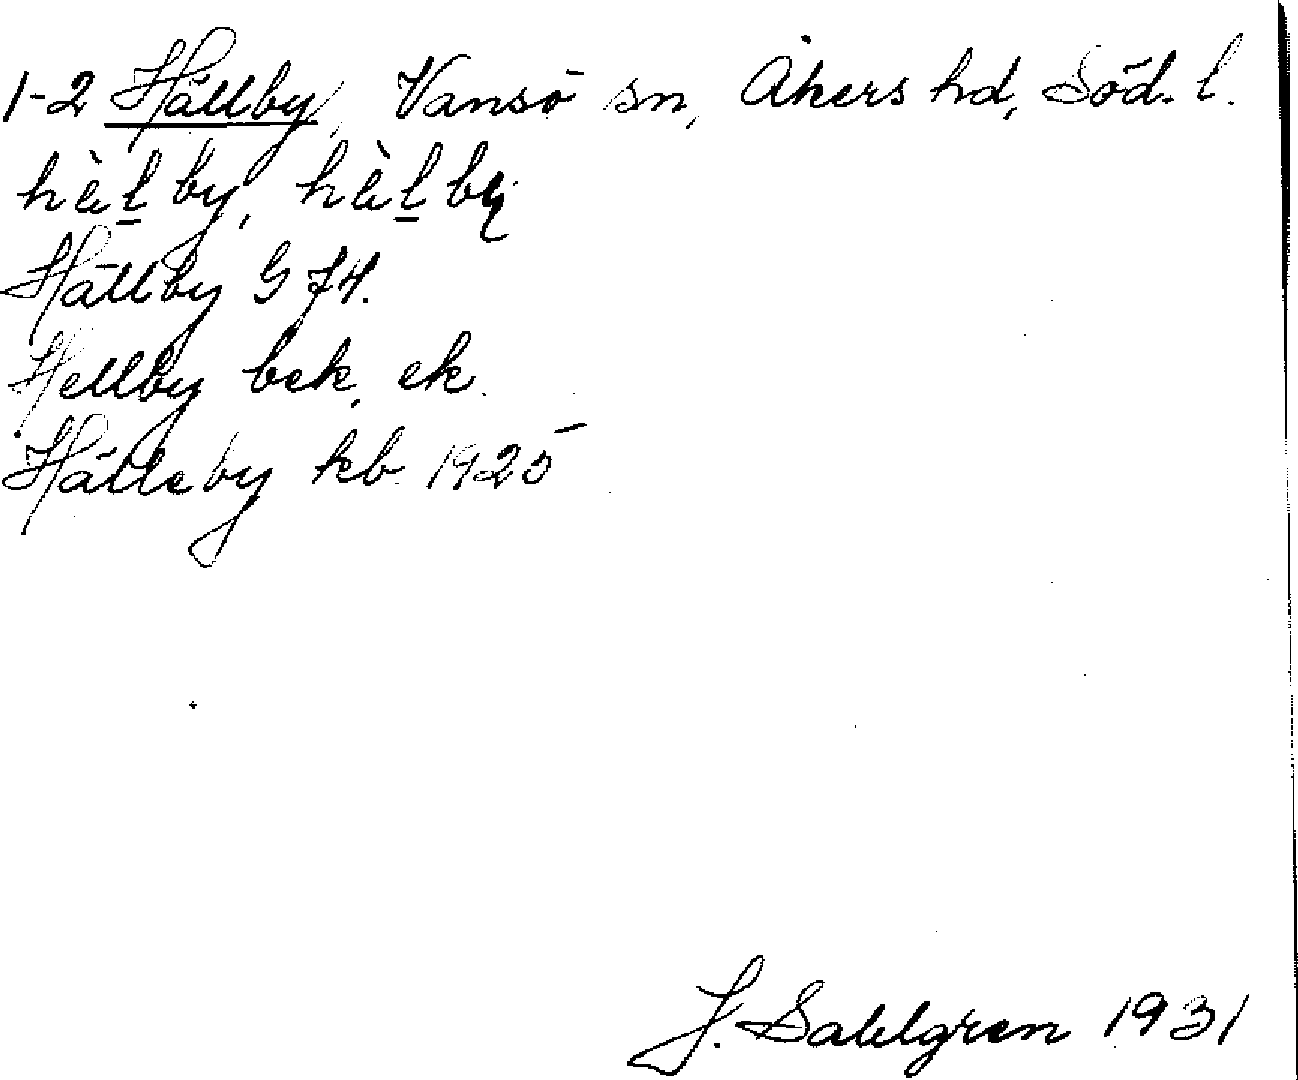 1-2 Hällby, Vansö sn, Åkers hd, Söd. l.
hæ̀l̲by, hæ̀l̲by
Hällby G J4.
Hellby bek, ek.
Hälleby kb 1925
J. Sahlgren 1931